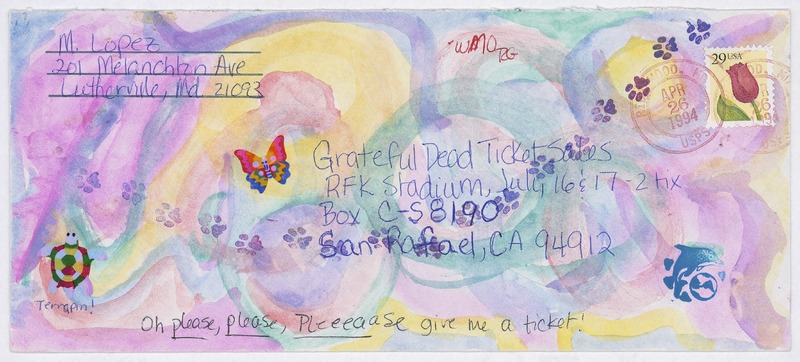 M. Lopez
201 Melanchton Ave
Lutherville, Md 21093
WMO
RG
29 USA
APR
26
1994
USPS
Grateful Dead Ticket Sales
RFK Stadium, July 16 & 17 - 2 tix
Box C-S 8190
San Rafael, CA 94912
Terrapin!
Oh please, please, Pleeeease give me a ticket!